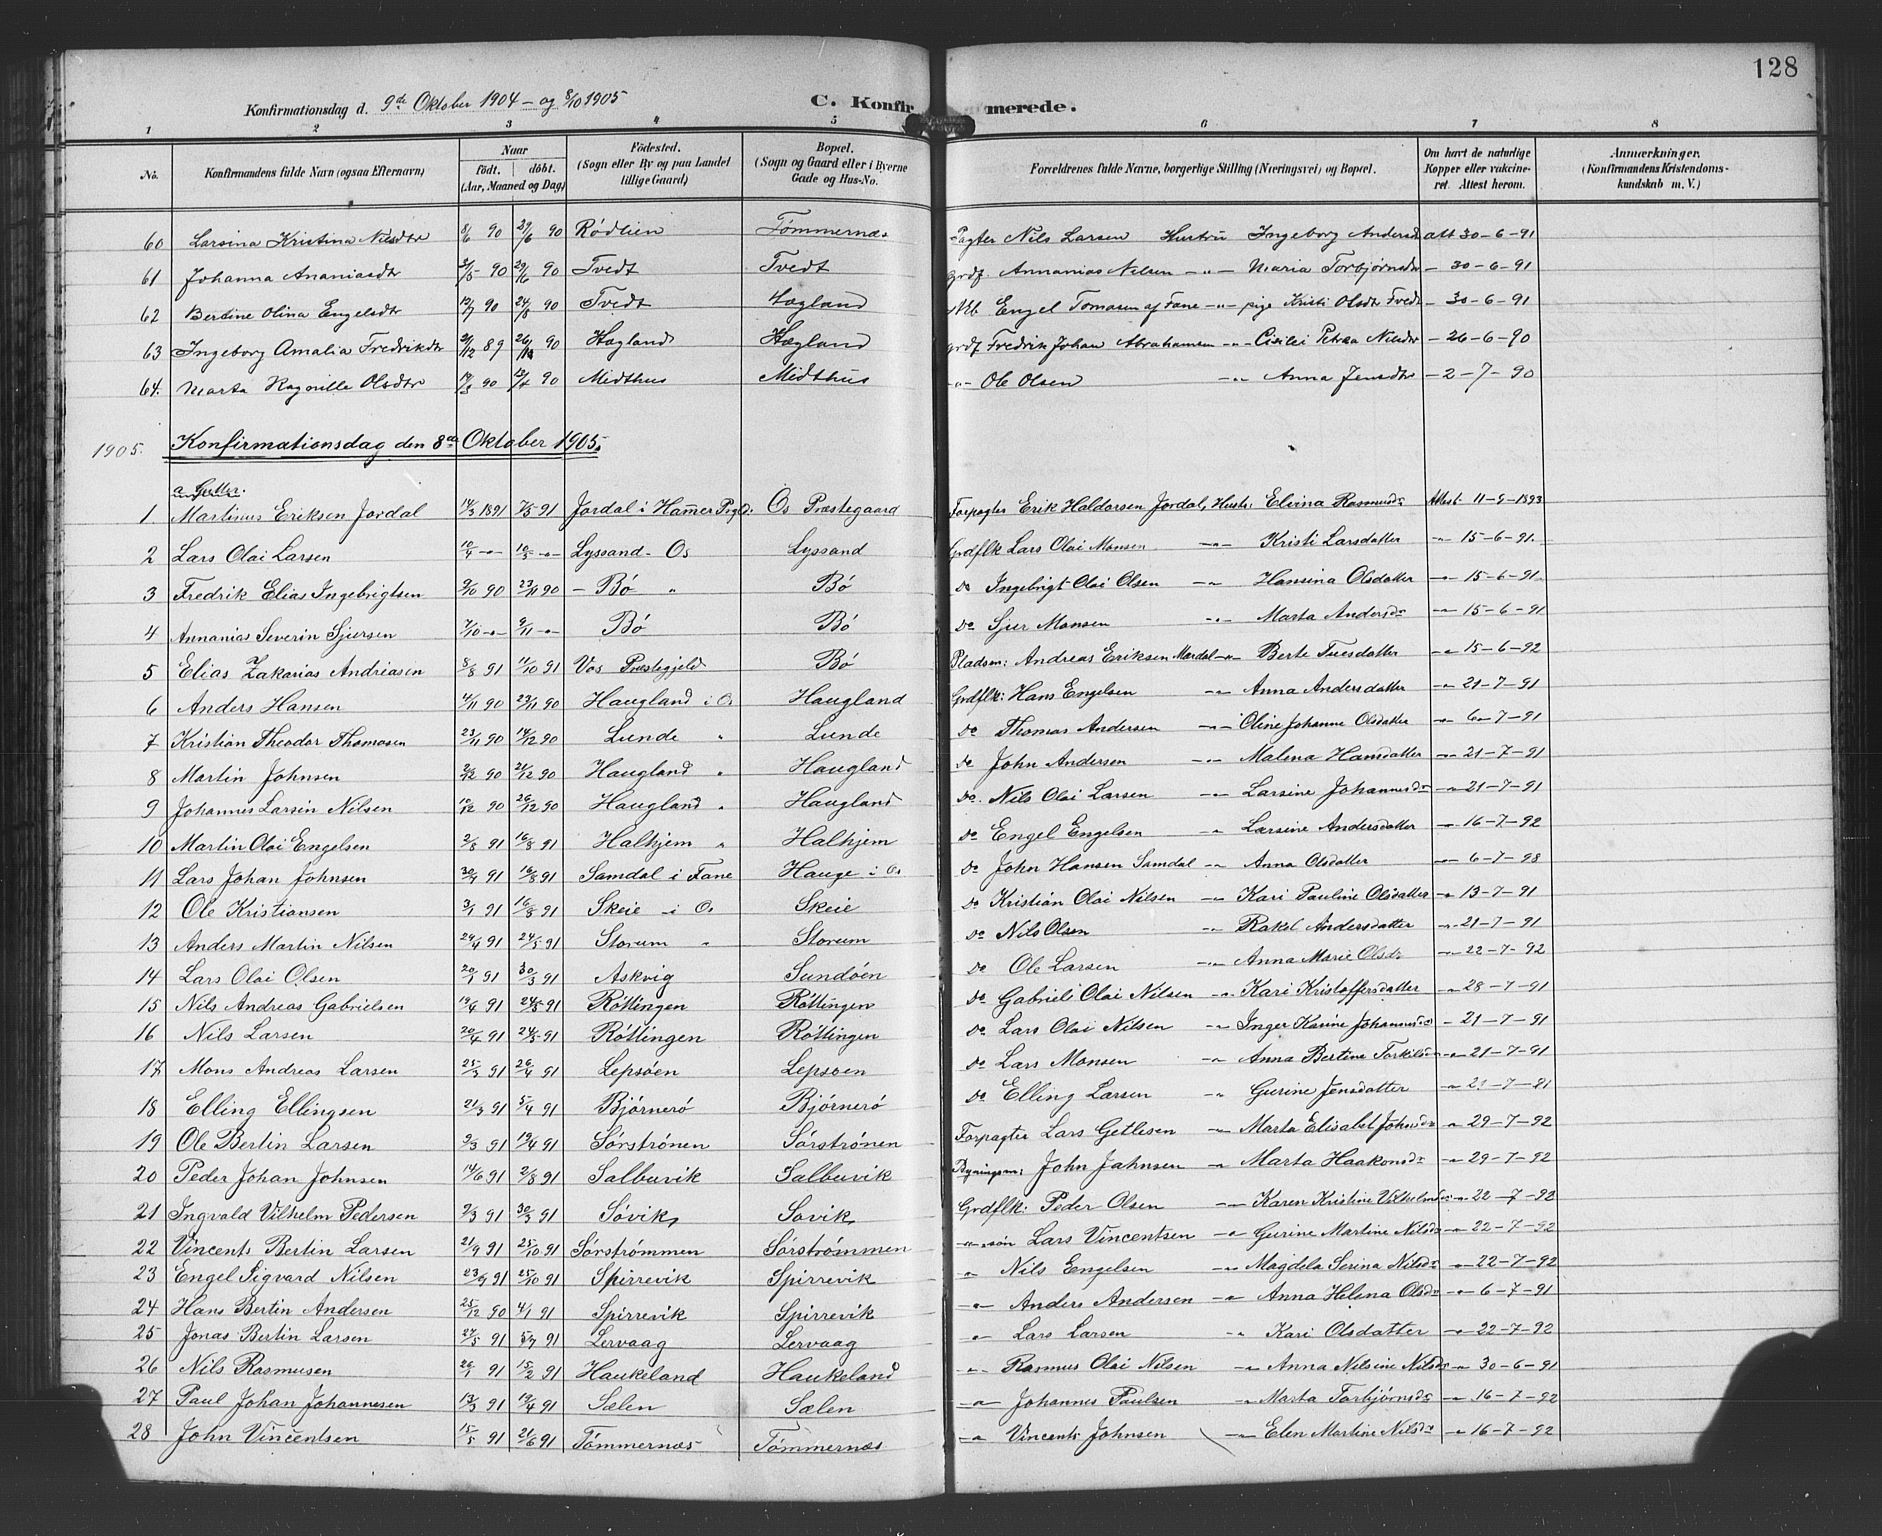 128
Konfirmationsdag d. 9de Oktober 1904 – og 8/10 1905 C. Konfirmerede.
1 2 3 4 5 6 7 8
No. Konfirmandens fulde Navn (ogsaa Efternavn) Naar født. døbt. (Aar, Maaned og Dag) Fødested. (Sogn eller By og paa Landet tillige Gaard) Bopæl. (Sogn og Gaard eller i Byerne Gade og Hus-No. Forældrenes fulde Navne, borgerlige Stilling (Næringsvei) og Bopæl. Om havt de naturlige Kopper eller vaccineret. Attest herom. Anmærkninger. (Konfirmandens Kristendomskundskab m. V.)
60 Larsina Kristina Nilsdtr 8/6 90 29/6 90 Rødlien Tømmernæs Pagter Nils Larsen Hustru Ingeborg Andersd att 30-6-91
61 Johanna Ananiasdtr 90 29/6 90 Tvedt Tvedt grdf. Annanias Nilsen –"– Maria Torbjørnsdtr – 30-6-91
62 Bertine Olina Engelsdtr 90 24/8 90 Tvedt Hægland Engel Tomasen af Fane –"– pige Kristi Olsdtr Tvedt – 30-6-91
63 Ingeborg Amalia Fredrikdtr 21/12 89 90 Hægland Hægland grdf Fredrik Johan Abrahamsen –"– Petrea Nilsdtr – 26-6-90
64. Marta Ragnille Olsdtr 90 90 Midthus Midthus –"– Ole Olsen –"– Anna Jensdtr – 2-7-90
1905. Konfirmationsdag den 8de Oktober 1905.
a. Gutter.
1 Martinus Eriksen Jordal 14/3 1891 7/5 91 Jordal i Hammer Prgld: Os Præstegaard Forpagter Erik Haldorsen Jordal, Hustr: Elvina Rasmusdr Attest. 11-9-1893
2 Lars Olai Larsen 10/4 –"– 10/5 –"– Lyssand – Os Lyssand Grdflk Lars Olai Monsen –"– Kristi Larsdatter –"– 15-6-91.
3 Fredrik Elias Ingebrigtsen 9/10 90 23/11 90 – Bö " Bö do Ingebrigt Olai Olsen –"– Hansina Olsdatter –"– 15-6-91
4 Annanias Severin Sjursen 7/10 –"– 9/11 –"– Bö Bö do Sjur Monsen –"– Marta Andersdr –"– 15-6-91
5 Elias Zakarias Andreasen 8/8 91 11/10 91 Vos Præstegjeld Bö Pladsm: Andreas Eriksen Mardal –"– Berte Tuesdatter –"– 15-6-92
6 Anders Hansen 4/11 90 23/11 90 Haugland i Os Haugland Grdflk: Hans Engelsen –"– Anna Andersdatter –"– 21-7-91
7 Kristian Theodor Thomasen 23/11 90 14/12 90 Lunde " Lunde do Thomas Andersen –"– Oline Johanne Olsdatter –"– 6-7-91
8 Martin Johnsen 2/12 90 21/12 90 Haugland " Haugland do John Andersen –"– Malena Hansdatter –"– 21-7-91
9 Johannes Larsin Nilsen 10/12 90 26/12 90 Haugland " Haugland do. Nils Olai Larsen –"– Larsine Johannesdr –"– 21-7-91
10 Martin Olai Engelsen 2/8 91 16/8 91 Halhjem " Halhjem do Engel Engelsen –"– Larsine Andersdatter –"– 16-7-92
11 Lars Johan Johnsen 91 16/8 91 Samdal i Fane Hauge i Os do John Hansen Samdal –"– Anna Olsdatter –"– 6-7-98
12 Ole Kristiansen 3/7 91 16/8 91 Skeie – i Os Skeie do Kristian Olai Nilsen –"– Kari Pauline Olsdatter –"– 13-7-91
13 Anders Martin Nilsen 24/4 91 24/5 91 Storum " Storum do Nils Olsen –"– Rakel Andersdatter –"– 21-7-91
14 Lars Olai Olsen 91 30/3 91 Askvig Sundöen do Ole Larsen –"– Anna Marie Olsdr –"– 22-7-92
15 Nils Andreas Gabrielsen 91 24/5 91 Röttingen Röttingen do Gabriel Olai Nilsen –"– Kari Kristoffersdatter –"– 28-7-91
16 Nils Larsen 20/4 91 24/5 91 Röttingen Röttingen do Lars Olai Nilsen –"– Inger Karine Johannesdr –"– 21-7-91
17 Mons Andreas Larsen 25/3 91 26/4 91 Lepsöen Lepsöen do Lars Monsen –"– Anna Bertine Torkilsdr –"– 21-7-91
18 Elling Ellingsen 21/3 91 5/4 91 Björnerö Björnerö do Elling Larsen –"– Gurine Jensdatter –"– 21-7-91
19 Ole Bertin Larsen 91 19/4 91 Sörströnen Sörströnen Forpagter Lars Getlesen –"– Marta Elisabet Johnsdr –"– 29-7-92
20 Peder Johan Johnsen 14/6 91 2/8 91 Salbuvik Salbuvik Bygningsm: John Jahnsen –"– Marta Haakonsdr –"– 29-7-92
21 Ingvald Vilhelm Pedersen 2/3 91 30/3 91 Sövik Sovik Grdflk: Peder Olsen –"– Karen Kristine Vilhelmsdr –"– 22-7-92
22 Vincents Bertin Larsen 21/9 91 25/10 91 Sörströmmen Sörströmmen –"– sön Lars Vincentsen –"– Gurine Martine Nilsdr –"– 22-7-92
23 Engel Sigvard Nilsen 23/9 91 25/10 91 Spirrevik Spirrevik " Nils Engelsen –"– Magdela Serina Nilsdr –"– 22-7-92
24 Hans Bertin Andersen 25/12 90 4/1 91 Spirrevik Spirrevik –"– Anders Andersen –"– Anna Helena Olsdr –"– 6-7-91
25 Jonas Bertin Larsen 27/5 91 5/7 91 Lervaag Lervaag " Lars Larsen –"– Kari Olsdatter –"– 22-7-92
26 Nils Rasmusen 26/1 91 15/2 91 Haukeland Haukeland –"– Rasmus Olai Nilsen –"– Anna Nilsine Nilsdr –"– 30-6-91
27 Paul Johan Johannesen 13/3 91 19/4 91 Sælen Sælen –"– Johannes Paulsen –"– Marta Torbjørnsdr –"– 16-7-92
28 John Vincentsen 15/5 91 21/6 91 Tömmernæs Tömmernæs –"– Vincents Johnsen –"– Elen Martine Nilsdr –"– 16-7-92